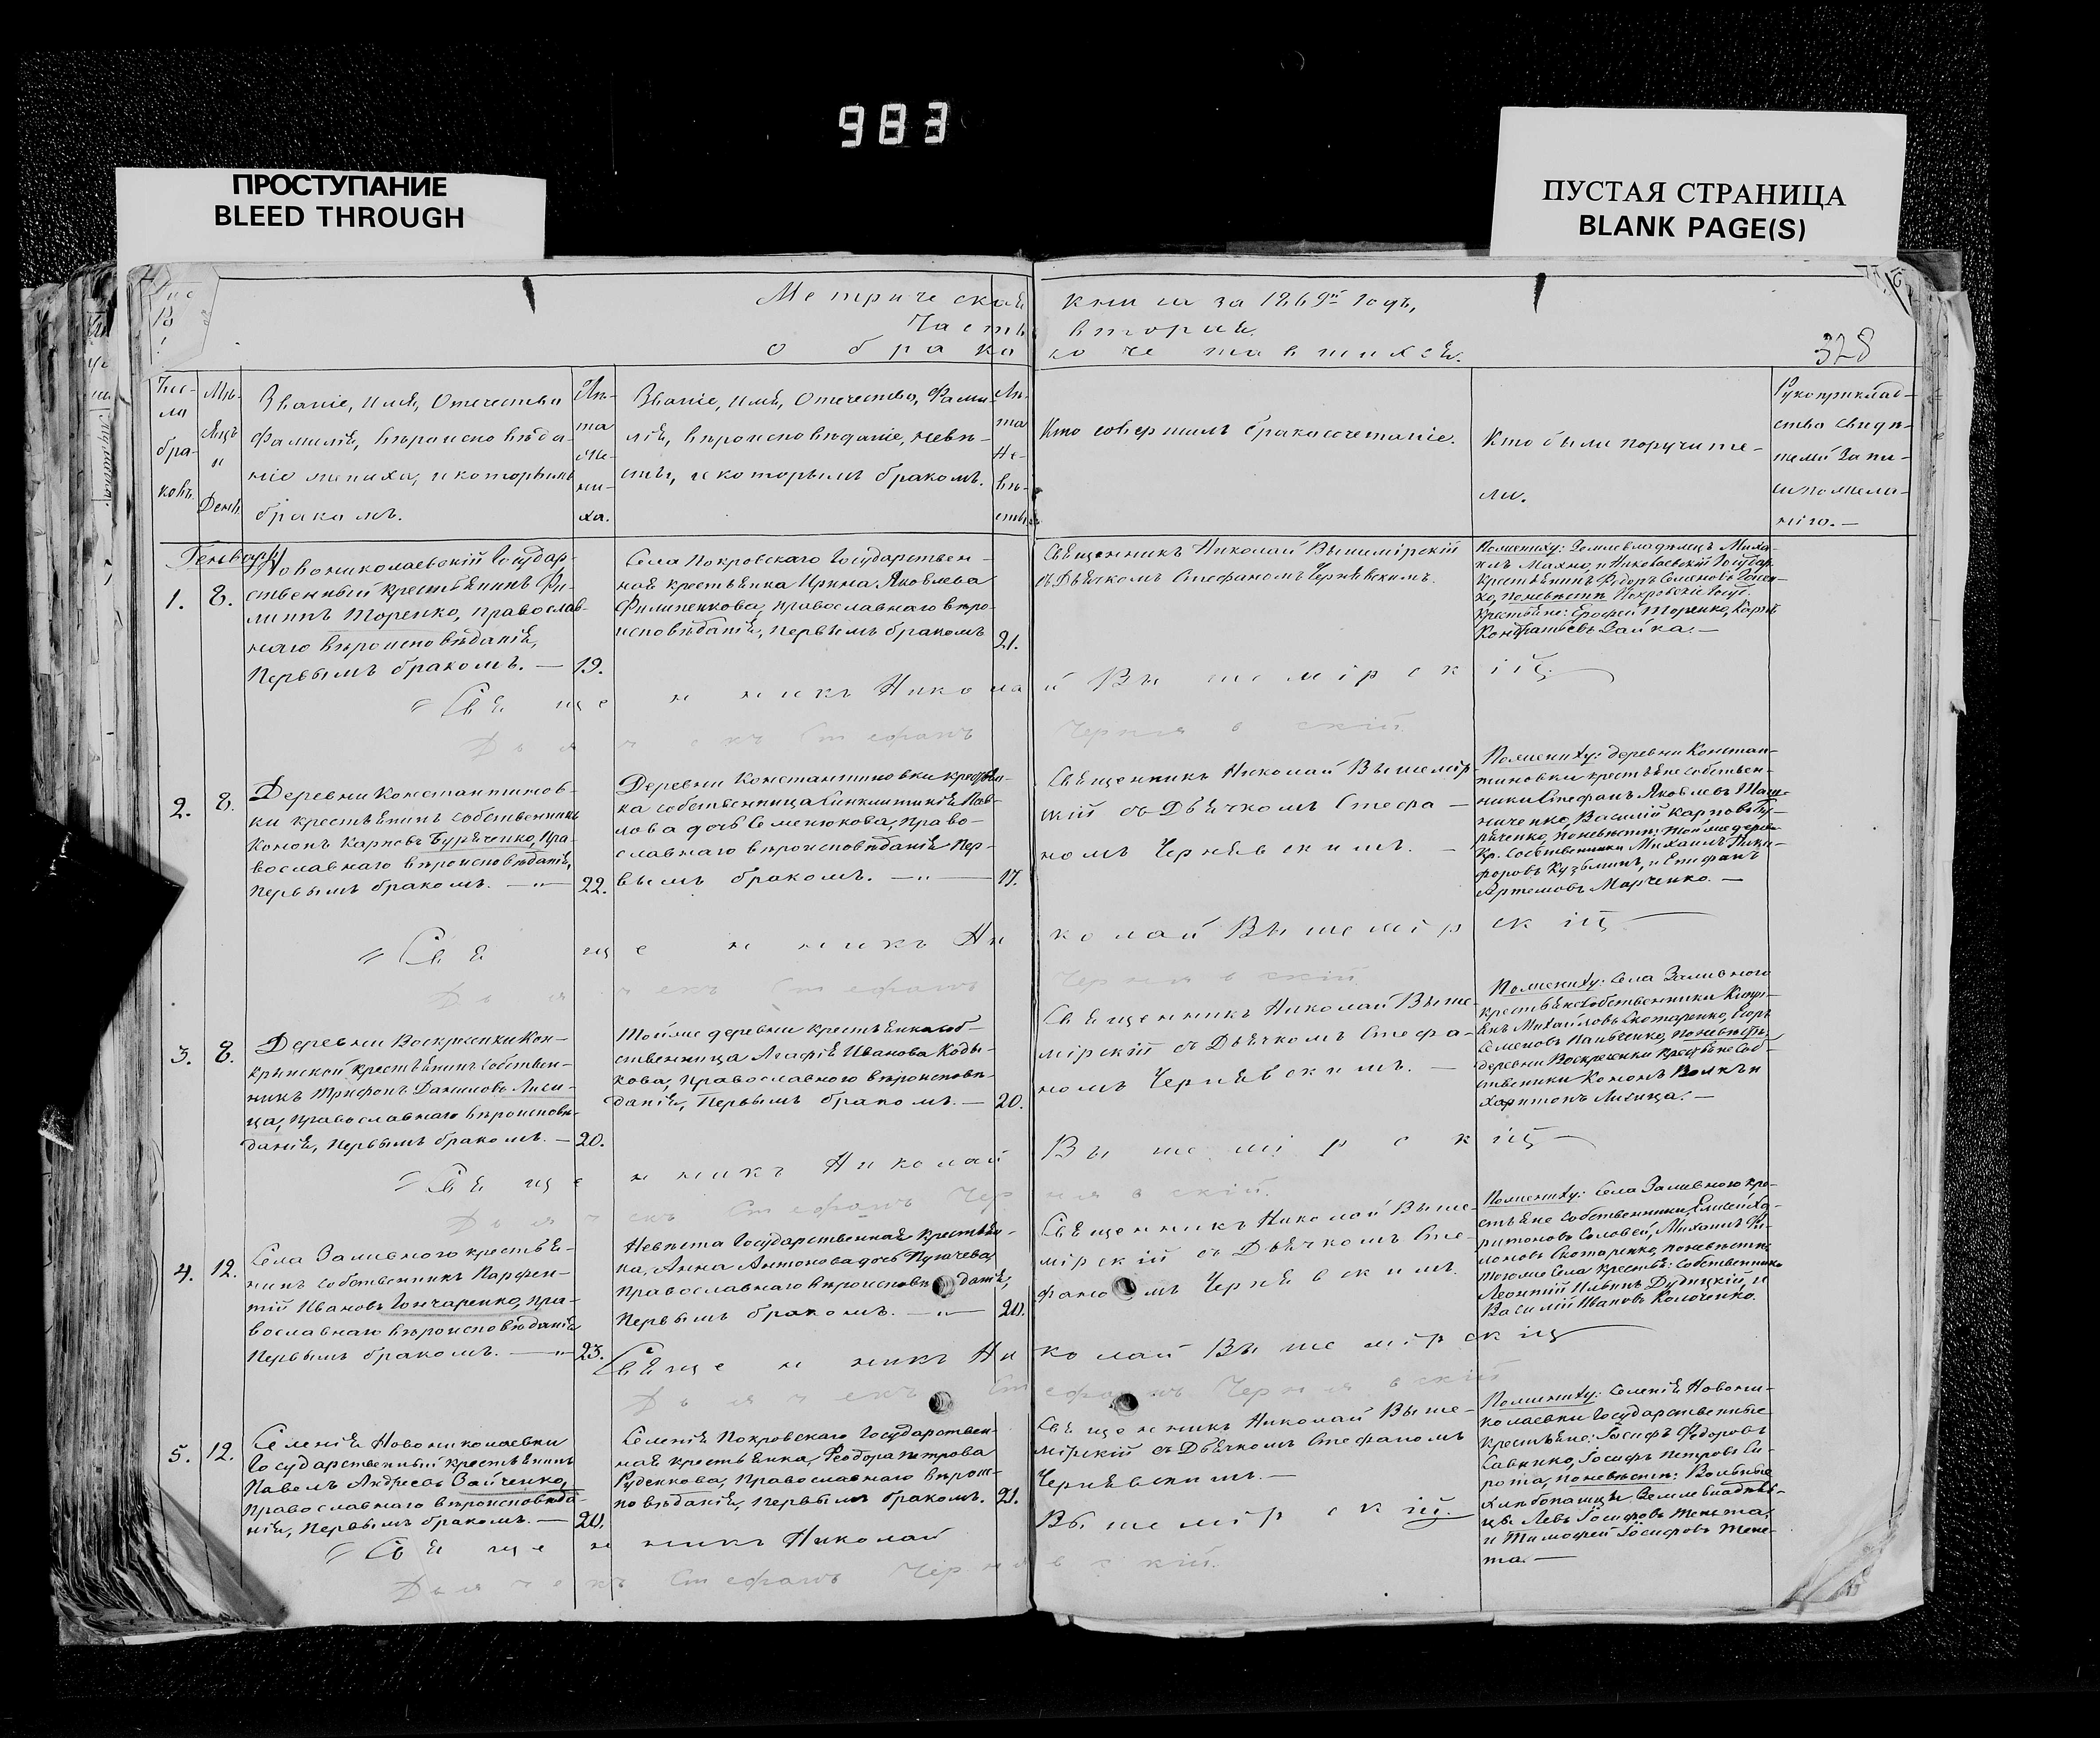 983
ПРОСТУПАНИЕ
BLEED THROUGH
ПУСТАЯ СТРАНИЦА
BLANK PAGE(S)
Метрической книги за 1869й годъ,
Часть вторая.
о бракосочетавшихся.
328
Чис-
ла
бра-
ковъ.
Мѣ-
сяцъ
и
День.
Званіе, имя, Отечество
Фамилія, вѣроисповѣда-
ніе жениха, и которымъ
бракомъ.
Лѣ-
та
Же-
ни-
ха.
Званіе, имя, Отечество, Фами-
лія, вѣроисповѣданіе, невѣ-
сты, и которымъ бракомъ.
Лѣ-
та
Не-
вѣ-
сты.
Кто совершилъ бракосочетаніе.
Кто были поручите-
ли.
Рукоприклад-
ство свидѣ-
телей записи
по жела-
нію.—
Генварь
1.
8.
Новониколаевскій Государ-
ственный крестьянинъ Фи-
липпъ Торенко, православ-
наго вѣроисповѣданія,
Первымъ бракомъ. —
19.
Села Покровскаго Государствен-
ная крестьянка Ирина Яковлева
Филипенкова, православнаго вѣро-
исповѣданія, первымъ бракомъ
21.
Священникъ Николай Вышемірскій
съ Дьячкомъ Стефаномъ Чернявскимъ.
По жениху: Землевладѣлецъ Миха-
илъ Махно, и Николаевскій Государ.
Крестьянинъ Федоръ Семеновъ
по невѣстѣ Покровскіе Госуд.
Крестьяне: Ерофей Торенко, Карпъ
Кондратьевъ Зайка.—
Священникъ Николай Вышемірскій
Дьячекъ Стефанъ Чернявскій
2.
8.
Деревни Константинов-
ки крестьянинъ собственникъ
Кононъ Карповъ Буряченко, Пра-
вославнаго вѣроисповѣданія,
Первымъ бракомъ. —„—
22.
Деревни Константиновки крестьян-
ка собственница Синклитикія Пав-
лова дочь Семенюкова, Право-
славнаго вѣроисповѣданія Пер-
вымъ бракомъ. —„—
17.
Священникъ Николай Вышемір-
скій съ Дьячкомъ Стефа-
номъ Чернявскимъ. —
По жениху: деревни Констан-
тиновки крестьяне собствен-
ники Стефанъ Яковлевъ
Василій Карповъ Бу-
ряченко, по невѣстѣ: той же дерев.
Кр. Собственники Михаилъ Ники-
форовъ Кузьминъ, и Епифанъ
Артемовъ Марченко. —
Священникъ Николай Вышемірскій
Дьячекъ Стефанъ Чернявскій
3.
8.
Деревни Воскресенки Кон-
крынской крестьянинъ собствен-
никъ Трифонъ Даниловъ Лиси-
ца, Православнаго вѣроисповѣ-
данія, Первымъ бракомъ. —
20.
Той же деревни крестьянка соб-
ственница Агафія Иванова Коды-
кова, Православнаго вѣроисповѣ-
данія, Первымъ бракомъ. —
20.
Священникъ Николай Выше-
мірскій съ Дьячкомъ Стефа-
номъ Чернявскимъ. —
По жениху: Села Заливного
крестьяне собственники Кипрі-
янъ Михайловъ Скотаренко,
Семеновъ по невѣстѣ:
деревни Воскресенки крестьяне соб-
ственики Кононъ Волкъ и
Харитонъ Лисица. —
Священникъ Николай Вышемірскій
Дьячекъ Стефанъ Чернявскій.
4.
12.
Села Заливного крестья-
нинъ собственникъ Парфен-
тій Ивановъ Гончаренко, пра-
вославнаго вѣроисповѣданія
Первымъ бракомъ. —„
23.
Невѣста Государственная крестьян-
ка, Анна Антонова дочь Пугачева,
православнаго вѣроисповѣданія,
Первымъ бракомъ. —„—
20.
Священникъ Николай Выше-
мірскій съ Дьячкомъ Сте-
фаномъ Чернявскимъ.
По жениху: Села Заливного кре-
стьяне собственники Елисей Ха-
ритоновъ Соловей, Михаилъ Фи-
лоновъ Скотаренко, по невѣстѣ
того же Села крестья: собственники
Леонтій Ильинъ Дудицкій, и
Василій Ивановъ Колоченко.
Священникъ Николай Вышемірскій
Дьячекъ Стефанъ Чернявскій
5.
12.
Селенія Новониколаевки
Государственный крестьянинъ
Павелъ Андреевъ Зайченко,
православнаго вѣроисповѣда-
нія, Первымъ бракомъ. —
20.
Селенія Покровскаго Государствен-
ная крестьянка, Феодора Петрова
Руденкова, Православнаго вѣроис-
повѣданія, первымъ бракомъ.
21.
Священникъ Николай Выше-
мірскій съ Дьячкомъ Стефаномъ
Чернявскимъ. —
По жениху: Селенія Новони-
колаевки Государственные
крестьяне: Іосифъ Федоровъ
Савенко, Іосифъ Петровъ Си-
рота, по невѣстѣ: Вольные
хлѣбопашцы Землевладѣль-
цы Левъ Іосифовъ Тенета,
и Тимофей Іосифовъ Тене-
та. —
Священникъ Николай Вышемірскій.
Дьячекъ Стефанъ Чернявскій.